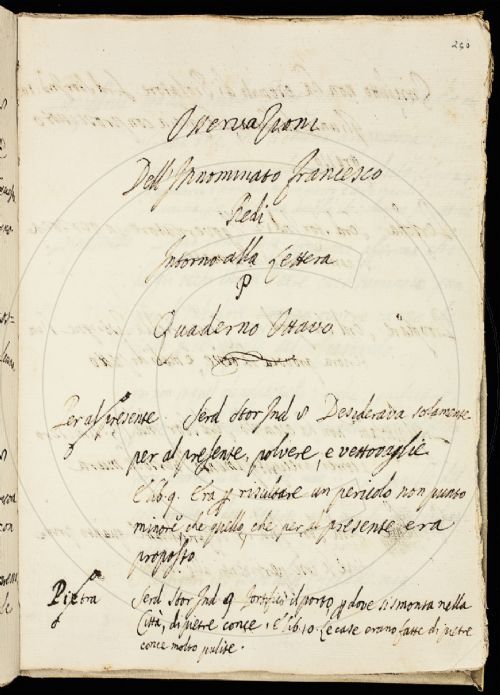 260
Osservazioni
Dell'Innominato Francesco
Redi
Intorno alla Lettera
P
Quaderno Ottavo
Per al presente Serd Stor Ind 8 Desiderava solamente
per al presente, polvere, e vettovaglie
E lib 9. Era p risultare un pericolo non punto
minore, che quello, che per al presente era
proposto
Pietra Serd Stor Ind 9 il porto p dove si smonta nella
Città, di pietre conce. E lib. 10 Le case erano fatte di pietre
conce molto pulite.